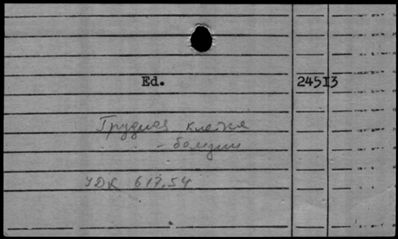 Ed. 24513
Грудная клетка
- болезни
УДК 617.54